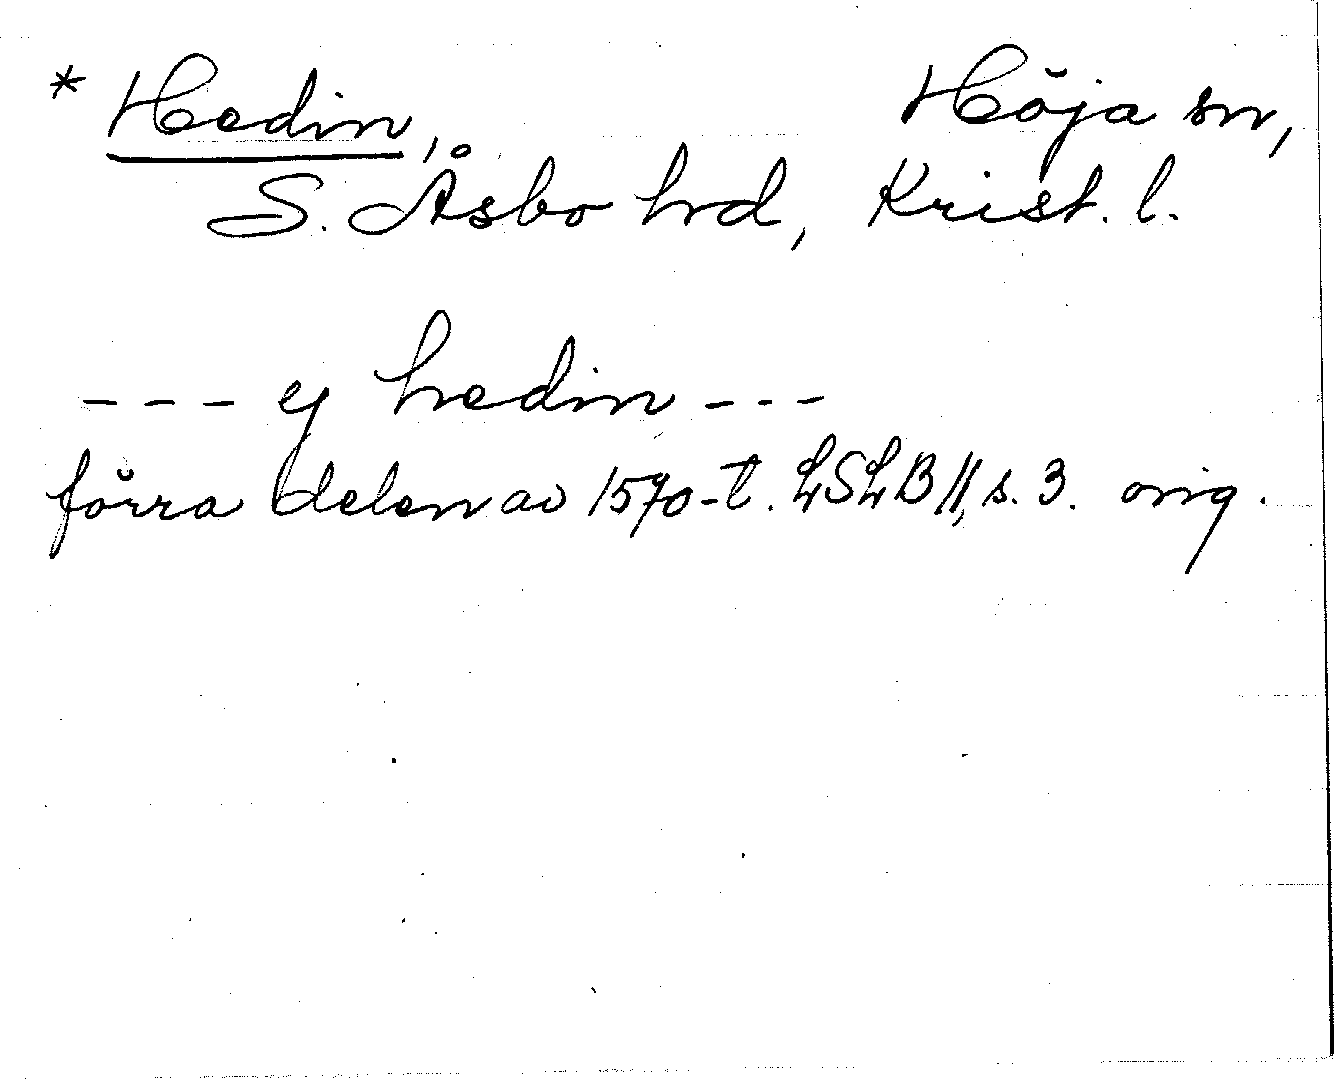 * Hedin, Höja sn,
S. Åsbo hrd, Krist. l.
--- ej hedin ---
förra delen av 1570-t. LSLB II, s. 3. orig.